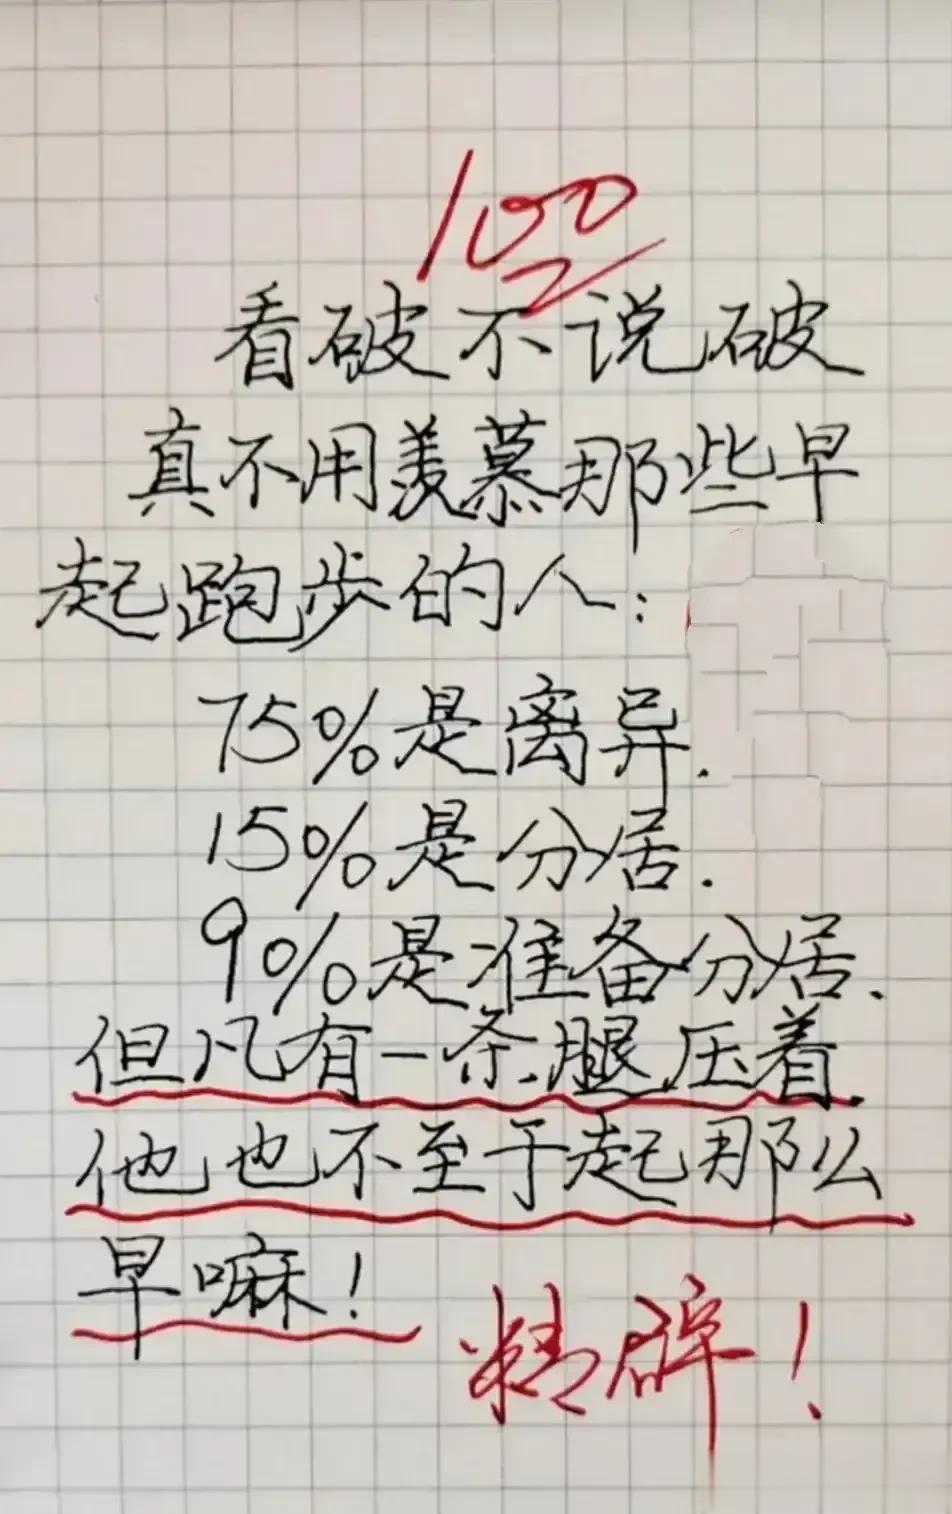 100
看破不说破
真不用羡慕那些早
起跑步的人:
75%是离异.
15%是分居.
9%是准备分居.
但凡有一条腿压着.
他也不至于起那么
早嘛!
精辟!